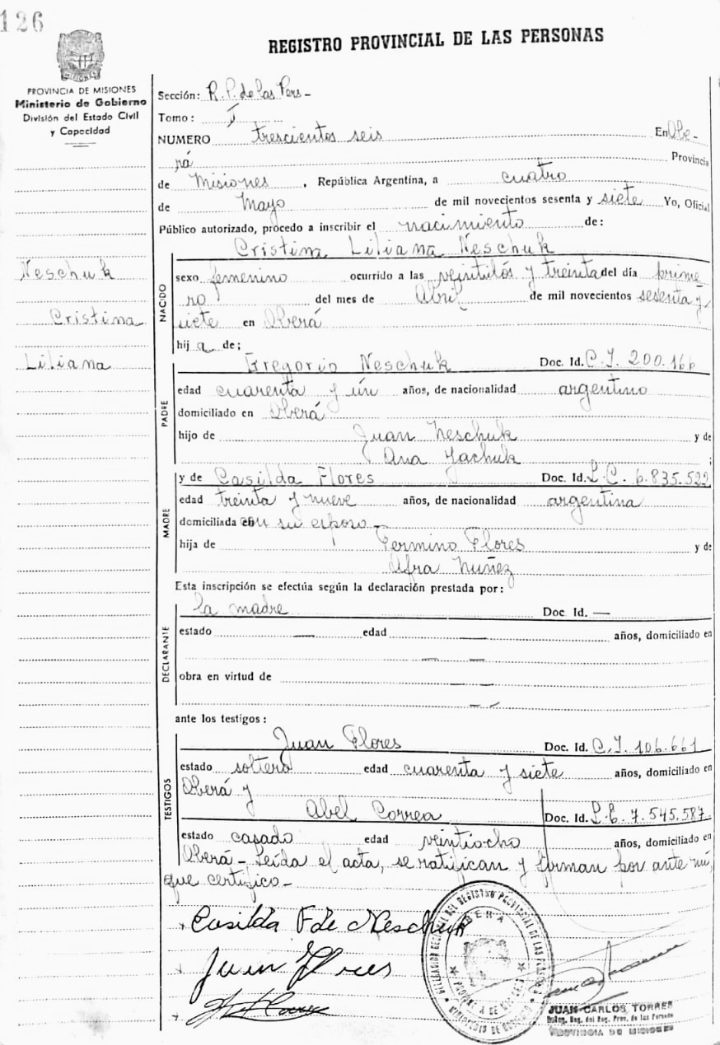 126
REGISTRO PROVINCIAL DE LAS PERSONAS
PROVINCIA DE MISIONES
Ministerio de Gobierno
División del Estado Civil
y Capacidad
Sección: R.P. de las Pers-
Tomo: I
NUMERO trescientos seis En Obe-
rá Provincia
de Misiones, República Argentina, a cuatro
de Mayo de mil novecientos sesenta y siete Yo, Oficial
Público autorizado, procedo a inscribir el nacimiento de:
Cristina Liliana Neschuk
Neschuk
Cristina
Liliana
NACIDO
sexo femenino ocurrido a las veintidós y treinta del día prime
ro del mes de Abril de mil novecientos sesenta y
siete en Oberá
hija de;
PADRE
Gregorio Neschuk Doc. Id. C.I. 200.166
edad cuarenta y un años, de nacionalidad argentino
domiciliado en Oberá
hijo de Juan Neschuk y de
Ana
MADRE
y de Casilda Flores Doc. Id. L.C. 6.835.522
edad treinta y nueve años, de nacionalidad argentina
domiciliada con su esposo-
hija de Fermino Flores y de
Afra Nuñez
Esta inscripción se efectúa según la declaración prestada por:
DECLARANTE
la madre Doc. Id. —
estado — edad — años, domiciliado en
— —
obra en virtud de
—
ante los testigos:
TESTIGOS
Juan Flores Doc. Id. C.I. 106.661
estado soltero edad cuarenta y siete años, domiciliado en
Oberá y
Abel Correa Doc. Id. L.E. 7.545.587
estado casado edad veintiocho años, domiciliado en
Oberá- Leída el acta, se ratifican y firman por ante mí,
que certifico-
Casilda F de Neschuk
Juan Flores
DEL REGISTRO PROVINCIAL DE LAS PERSONAS
OBERA
PROVINCIA DE MISIONES
JUAN CARLOS TORRES
Deleg. Reg. del Reg. Prov. de las Personas
PROVINCIA DE MISIONES